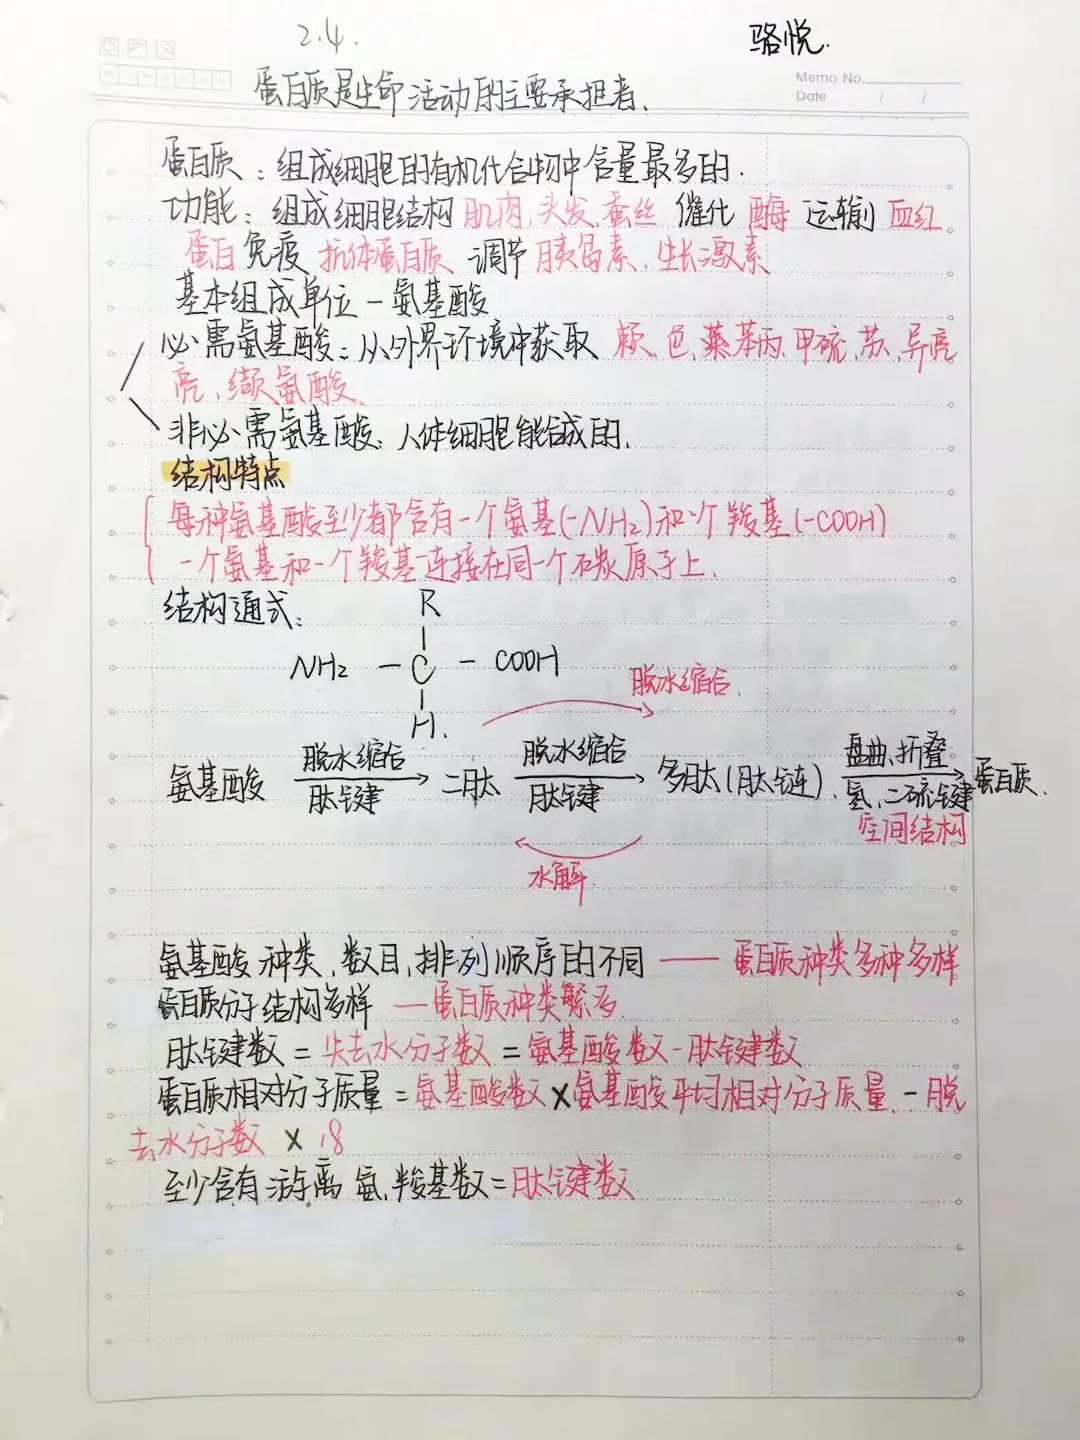 2.4.
骆悦.
Memo No.
Date / /
蛋白质是生命活动的主要承担者.
蛋白质:组成细胞的有机化合物中含量最多的.
功能:组成细胞结构 肌肉,头发,蚕丝 催化 酶 运输 血红
蛋白 免疫 抗体蛋白质 调节 胰岛素,生长激素
基本组成单位-氨基酸
必需氨基酸:从外界环境中获取 赖,色,苯丙,甲硫,苏,异亮
亮,缬氨酸.
非必需氨基酸:人体细胞能合成的.
结构特点
每种氨基酸至少都含有一个氨基(-NH₂)和一个羧基(-COOH)
一个氨基和一个羧基连接在同一个碳原子上.
结构通式:
R
NH₂ - C - COOH
H.
脱水缩合.
氨基酸 脱水缩合 肽键 → 二肽 脱水缩合 肽键 → 多肽(肽链). 盘曲,折叠 氢,二硫键 → 蛋白质.
空间结构
水解.
氨基酸种类,数目,排列顺序的不同 —— 蛋白质种类多种多样
蛋白质分子结构多样 — 蛋白质种类繁多.
肽键数 = 失去水分子数 = 氨基酸数-肽键数
蛋白质相对分子质量 = 氨基酸数 × 氨基酸平均相对分子质量 - 脱
去水分子数 × 18
至少含有游离氨,羧基数 = 肽键数